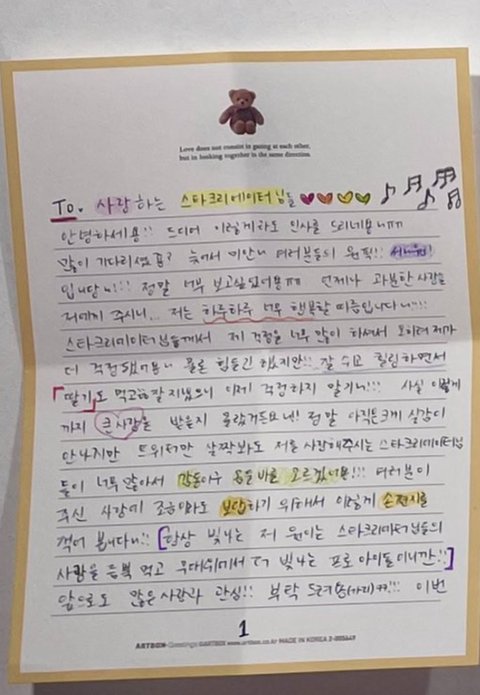 Love does not consist in gazing at each other,
but in looking together in the same direction.
To. 사랑하는 스타크리에이터님들
안녕하세용!! 드디어 이렇게라도 인사를 드리네용ㅠㅠ
많이 기다리셨죠? 늦어서 미안니 여러분들의 원픽!!
입니당니!!! 정말 너무 보고싶었어용ㅠㅠ 언제나 과분한 사랑을
저에게 주시니... 저는 하루하루 너무 행복할 따름입니다니!!!!
스타크리에이터님들께서 제 걱정을 너무 많이 하셔서 오히려 제가
더 걱정되었어용니 물론 힘들긴 했지만!! 잘 쉬고 힐링하면서
「딸기」도 먹고 잘 지냈으니 이제 걱정하지 말기니!!! 사실 이렇게
까지 큰사랑을 받을지 몰랐거든요니! 정말 아직도 크게 실감이
안나지만 트위터만 살짝봐도 저를 사랑해주시는 스타크리에이터님
들이 너무 많아서 감동이구 몸둘바를 모르겠어용!!! 여러분이
주신 사랑에 조금이라도 보답하기 위해서 이렇게 손편지를
적어 봅니다니!! [항상 빛나는 저 원이는 스타크리에이터님들의
사랑을 듬뿍 먹고 무대위에서 더 빛나는 프로아이돌이니깐!!]
앞으로도 많은 사랑과 관심!! 부탁 드려용(까리)ㅋㅋ!!! 이번
1
ARTBOX Greetings ©ARTBOX www.artbox.co.kr MADE IN KOREA